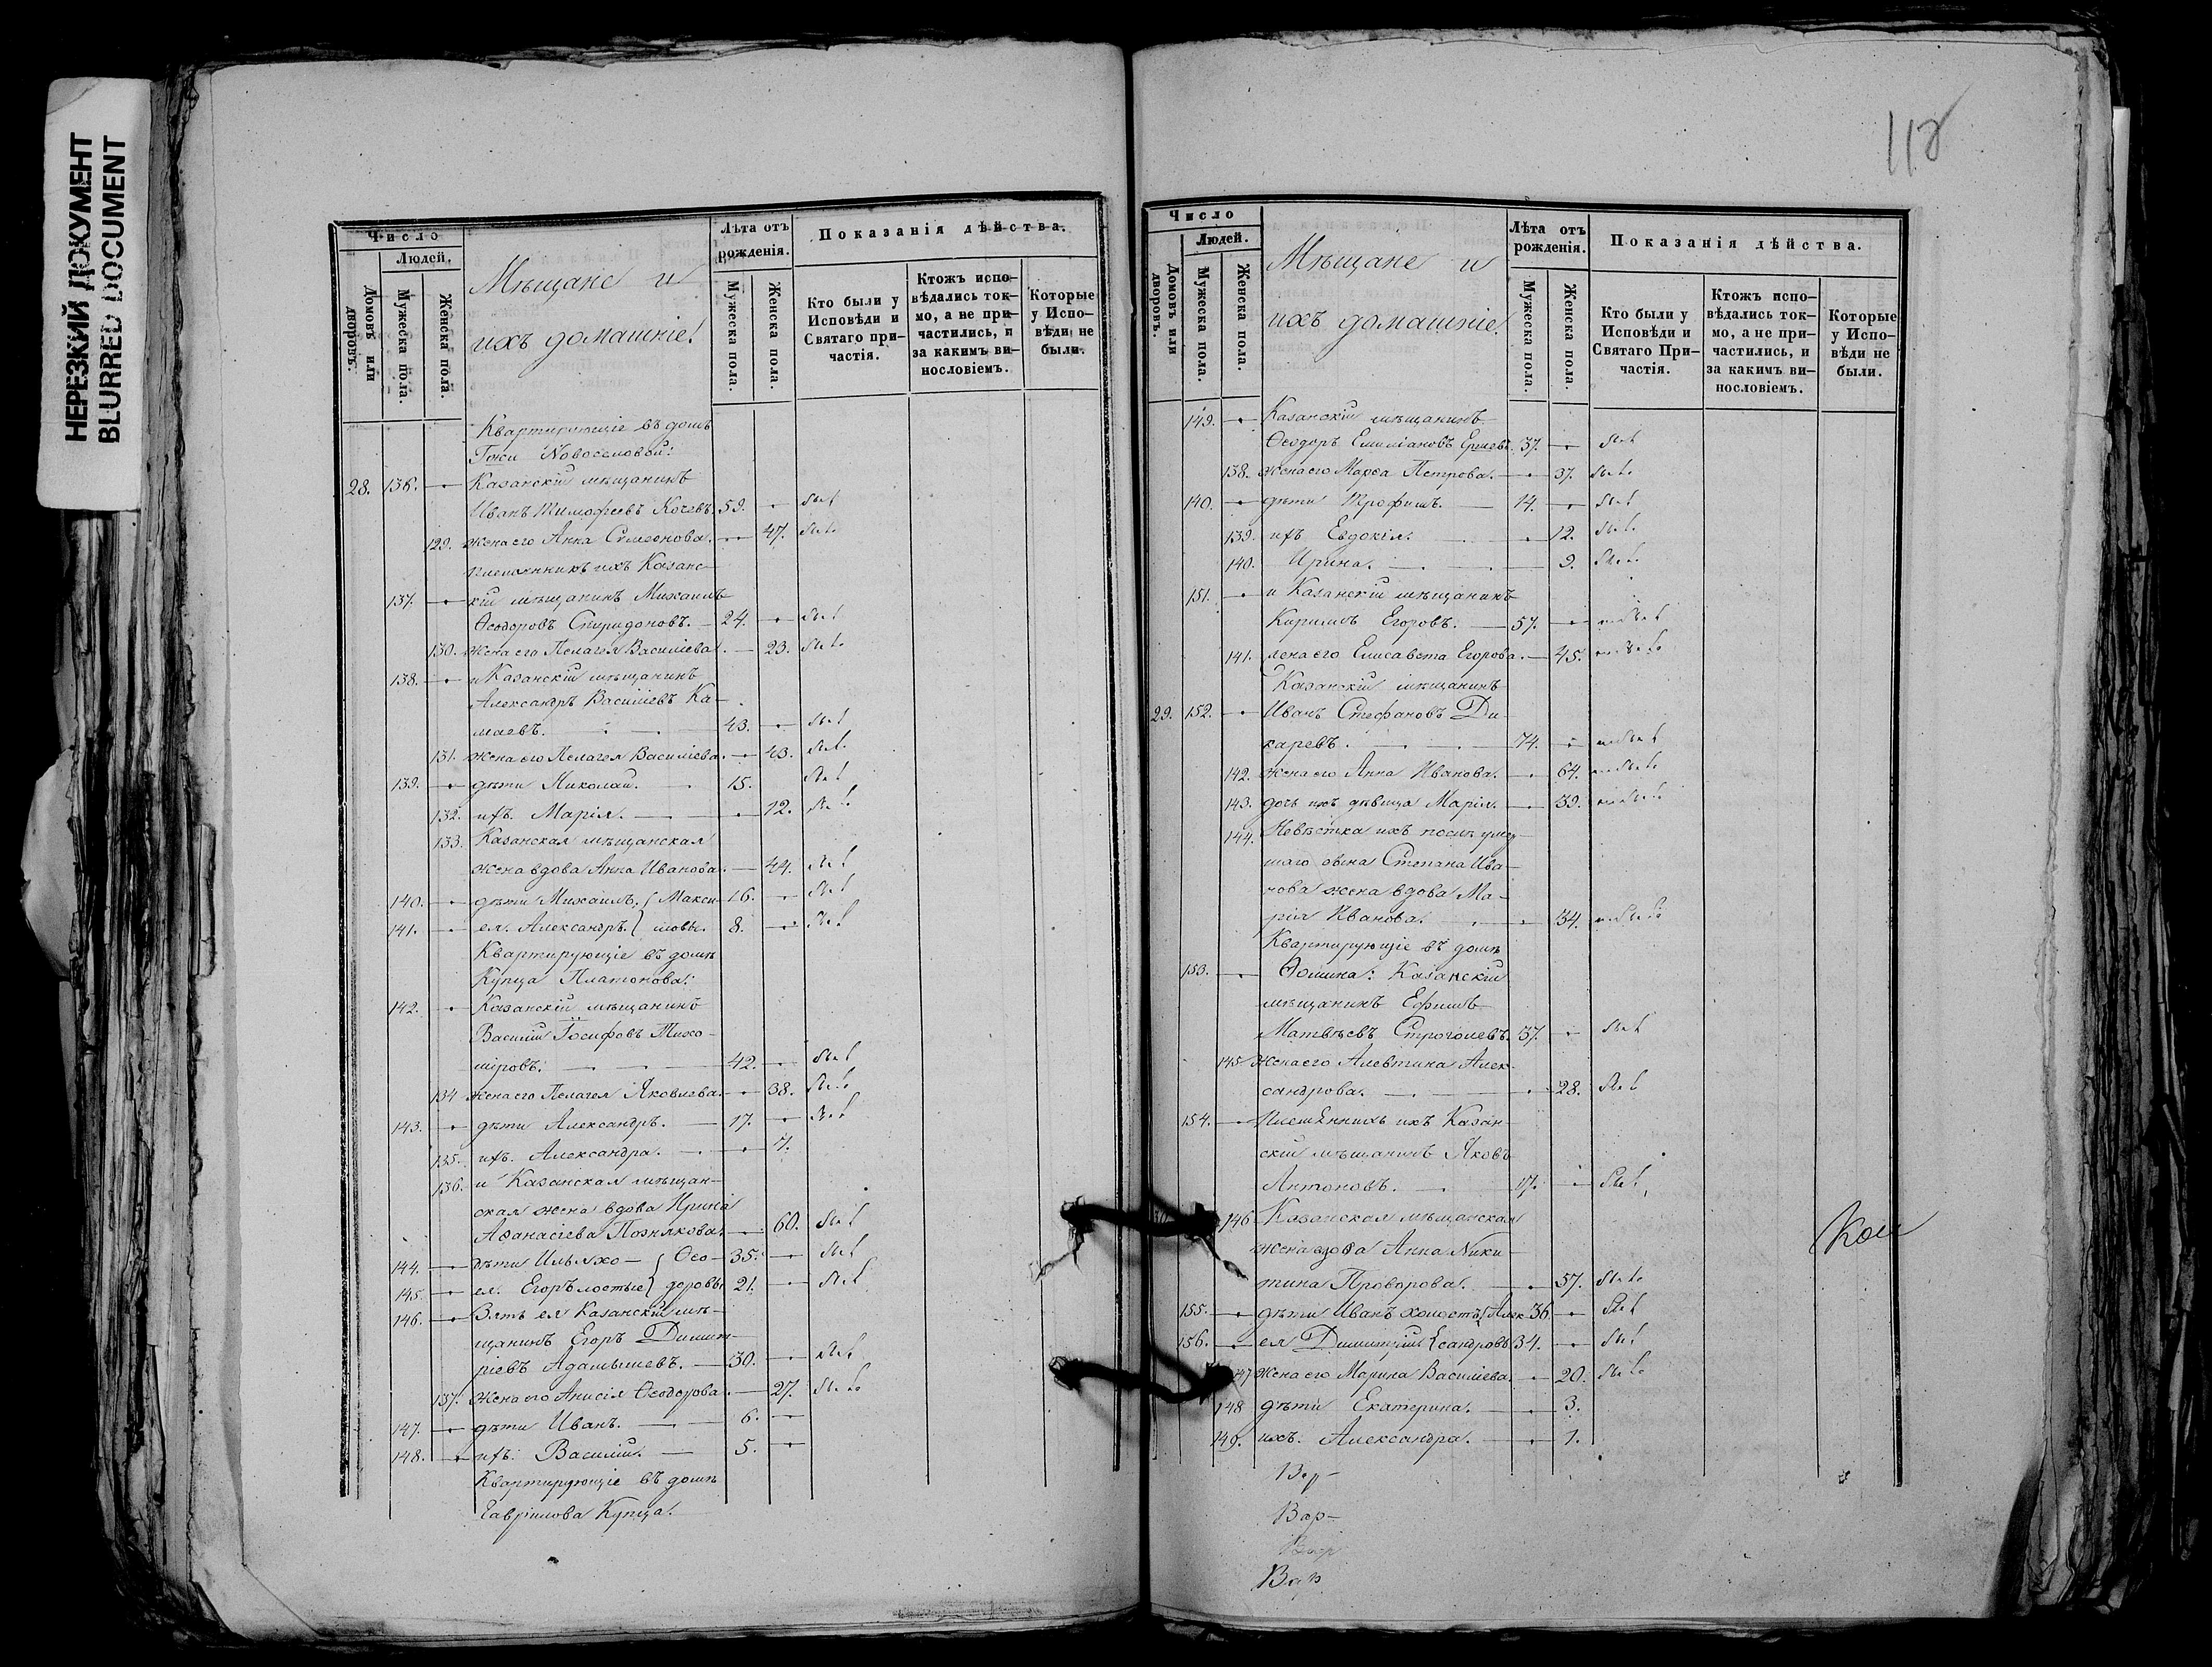 НЕРЕЗКИЙ ДОКУМЕНТ
BLURRED DOCUMENT
Число
Людей.
Домовъ или дворовъ.
Мужеска пола.
Женска пола.
Мѣщане и
ихъ домашніе.
Лѣта отъ рожденія.
Мужеска пола.
Женска пола.
Показанія дѣйства.
Кто были у Исповѣди и Святаго причастія.
Ктожъ исповѣдались токмо, а не причастились, и за какимъ винословіемъ.
Которые у Исповѣди не были.
Квартирующіе въ домѣ
Гжи Новоселовой:
28. 136. Казанскій мѣщанинъ
Иванъ Тимофеевъ Кочевъ. 59.
129. жена его Анна Симеонова. 47.
племянникъ ихъ Казанс-
137. кій мѣщанинъ Михаилъ
Ѳеодоровъ Спиридоновъ. 24.
130. жена его Пелагея Василіева. 23.
138. и Казанскій мѣщанинъ
Александръ Василіевъ Ка-
маевъ. 43.
131. жена его Пелагея Василіева. 43.
139. дѣти Николай. 15.
132. ихъ. Марія. 12.
133. Казанская мѣщанская
жена вдова Анна Иванова. 44.
140. дѣти Михаилъ. Макси- 16.
141. ея. Александръ. мовы. 8.
Квартирующіе въ домѣ
Купца Платонова:
142. Казанскій мѣщанинъ
Василій Іосифовъ Тихо-
міровъ. 42.
134 жена его Пелагея Яковлева. 38.
143. дѣти Александръ. 17.
135. ихъ. Александра. 7.
136. и Казанская мѣщан-
ская жена вдова Ирина
Аѳанасіева Познякова. 60.
144. дѣти Илья хо- Ѳео- 35.
145. ея. Егоръ лостые доровы 21.
146. Зять ея Казанскій мѣ-
щанинъ Егоръ Димит-
ріевъ Адамышевъ. 30.
137. жена его Анисія Ѳеодорова. 27.
147. дѣти Иванъ. 6.
148. ихъ. Василій. 5.
Квартирующіе въ домѣ
Гаврилова Купца.
118
Число
Людей.
Домовъ или дворовъ.
Мужеска пола.
Женска пола.
Мѣщане и
ихъ домашніе.
Лѣта отъ рожденія.
Мужеска пола.
Женска пола.
Показанія дѣйства.
Кто были у Исповѣди и Святаго Причастія.
Ктожъ исповѣдались токмо, а не причастились, и за какимъ винословіемъ.
Которые у Исповѣди не были.
149. Казанскій мѣщанинъ
Ѳеодоръ Емиліановъ 37.
138. жена его Марѳа Петрова. 37.
140. дѣти Трофимъ. 14.
139. ихъ Евдокія. 12.
140. Ирина. 9.
151. и Казанскій мѣщанинъ
Кириллъ Егоровъ. 57.
141. жена его Елисавета Егорова. 45.
Казанскій мѣщанинъ
29. 152. Иванъ Стефановъ Ди-
каревъ. 74.
142. жена его Анна Иванова. 64.
143. дочь ихъ дѣвица Марія. 39.
144. Невѣстка ихъ послѣ умер-
шаго сына Степана Ива-
нова жена вдова Ма-
рія Иванова. 34.
Квартирующіе въ домѣ
153. Ѳомина: Казанскій
мѣщанинъ Ефимъ
Матвѣевъ Строголевъ. 37.
145 жена его Алевтина Алек-
сандрова. 28.
154. Племянникъ ихъ Казан-
скій мѣщанинъ Яковъ
Антоновъ. 17.
146 Казанская мѣщанская
жена вдова Анна Ники-
тина Проворова. 57.
155. дѣти Иванъ холостъ Алек- 36
156. ея Димитрій сандровы 34.
147 жена его Марина Василіева. 20.
148 дѣти Екатерина. 3.
149. ихъ. Александра. 1.
Кои
Вар-
Вар-
Вар